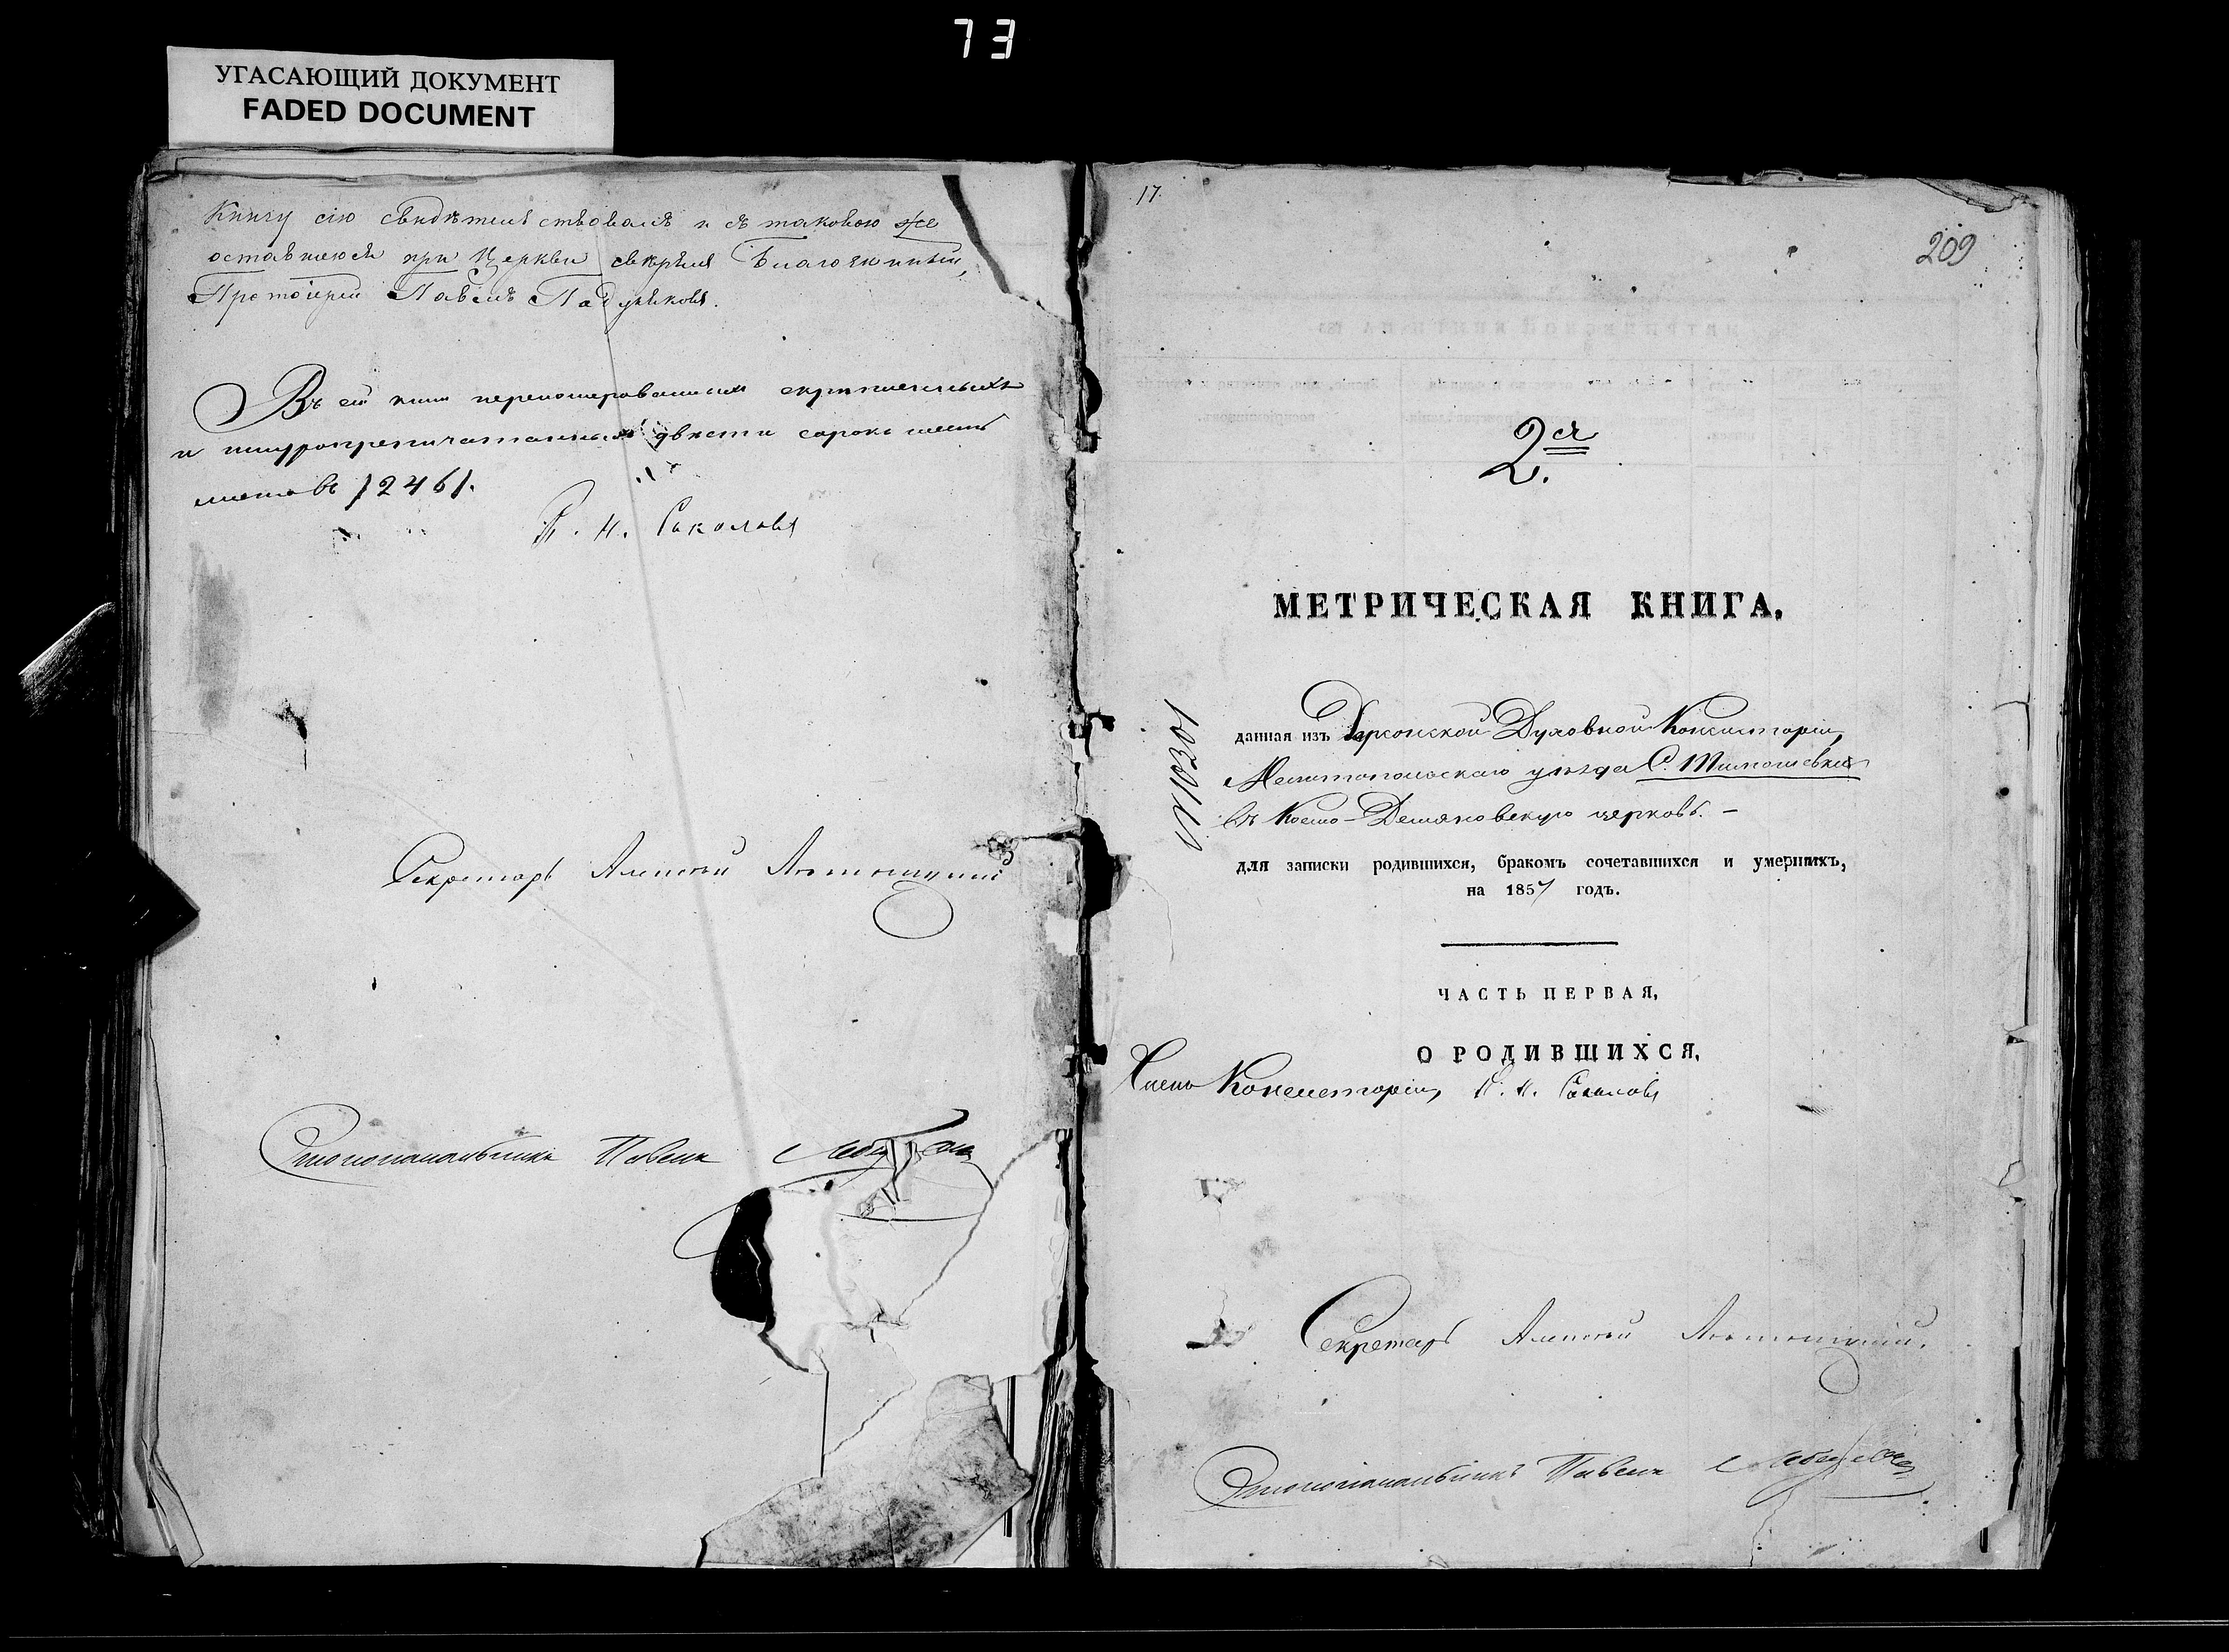 73
УГАСАЮЩИЙ ДОКУМЕНТ
FADED DOCUMENT
Книгу сію свидѣтельствовалъ и съ таковою же
оставшеюся при Церкви свѣрялъ Благочинный,
Протоіерей Павелъ
Въ сей книгѣ перенумерованныхъ скрѣпленныхъ
и шнуропрепечатанныхъ двѣсти сорокъ шесть
листовъ /246/.
П. Н. Соколовъ
Секретарь Алексей
Столоначальникъ Павелъ
17.
209
2ая
МЕТРИЧЕСКАЯ КНИГА,
данная изъ Херсонской Духовной Консисторіи,
Мелитопольскаго уѣзда С. Тимошевки
въ Космо-Деміяновскую церковь. –
для записки родившихся, бракомъ сочетавшихся и умершихъ,
на 1857 годъ.
ЧАСТЬ ПЕРВАЯ,
О РОДИВШИХСЯ,
Членъ Консисторіи, П. Н. Соколовъ
Секретарь Алексей
Столоначальникъ Павелъ